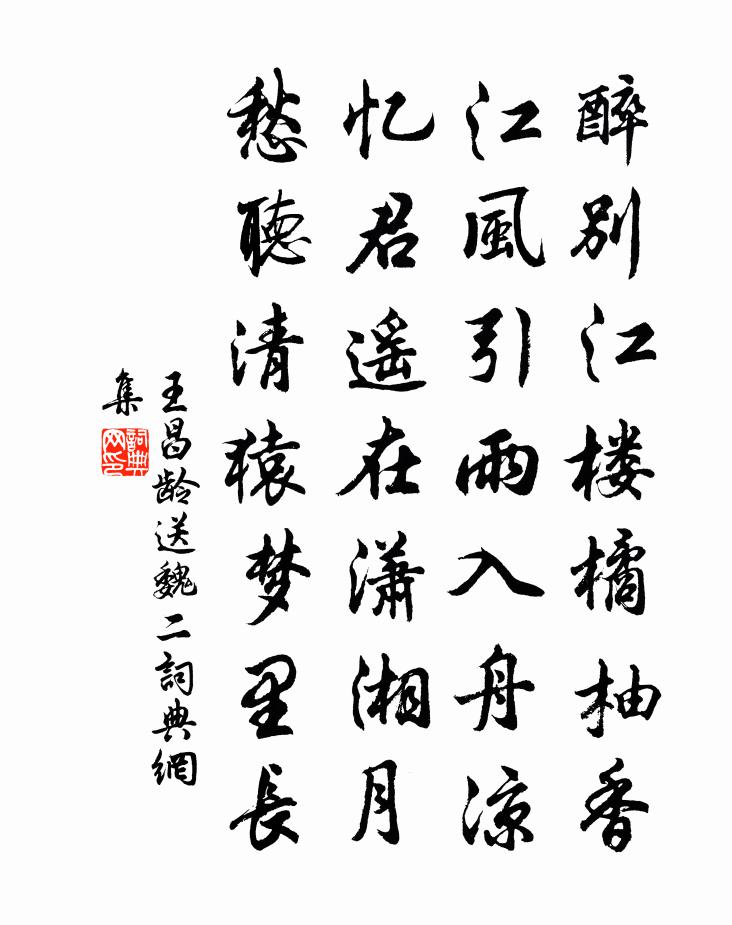 醉别江楼橘柚香
江風引雨入舟凉
忆君遥在潇湘月
愁聽清猿梦里長
王昌龄送魏二詞典網
集
詞典
网印